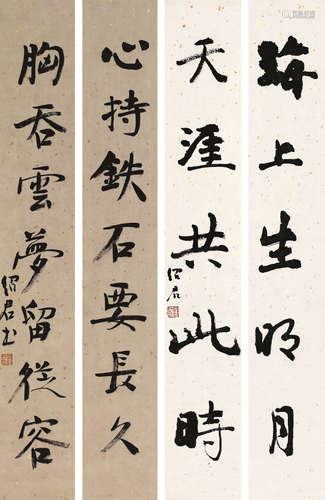 海上生明月
天涯共此時
紹君
心持鉄石要長久
胸吞雲夢留從容
紹君书